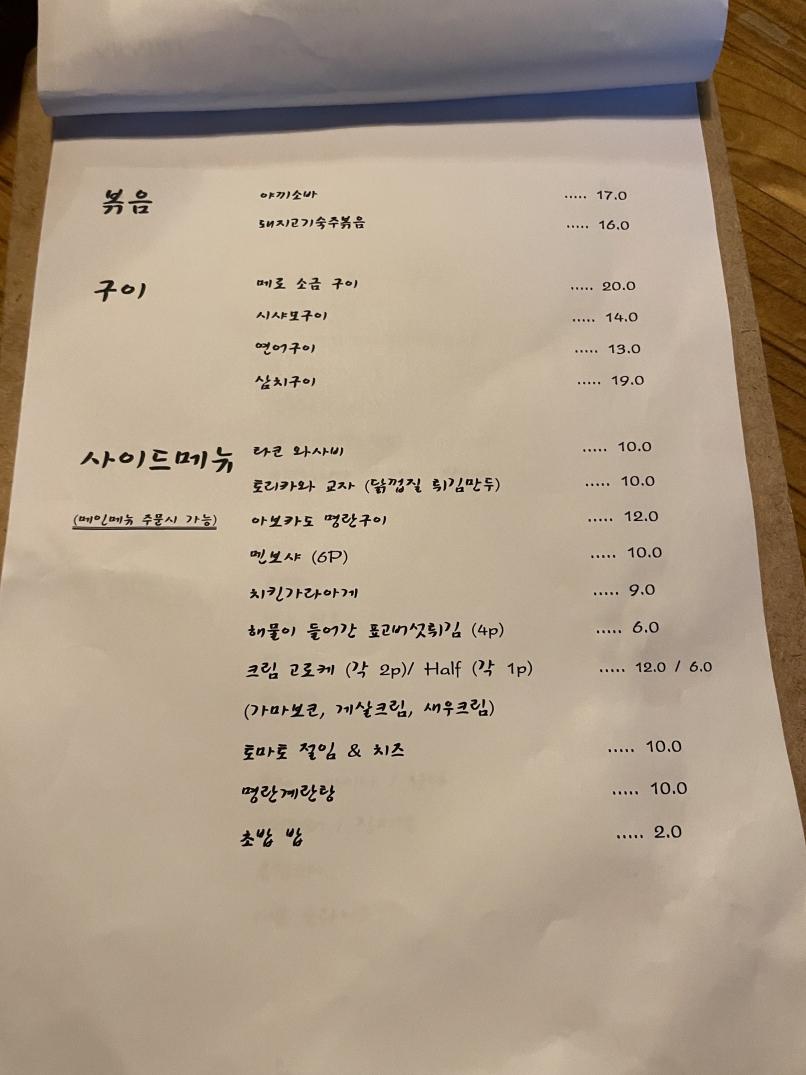 볶음 야끼소바 ..... 17.0
돼지고기숙주볶음 ..... 16.0
구이 메로 소금 구이 ..... 20.0
시샤모구이 ..... 14.0
연어구이 ..... 13.0
삼치구이 ..... 19.0
사이드메뉴 타코 와사비 ..... 10.0
토리카와 교자 (닭껍질 튀김만두) ..... 10.0
(메인메뉴 주문시 가능) 아보카도 명란구이 ..... 12.0
멘보샤 (6P) ..... 10.0
치킨가라아게 ..... 9.0
해물이 들어간 표고버섯튀김 (4p) ..... 6.0
크림 고로케 (각 2p)/ Half (각 1p) ..... 12.0 / 6.0
(가마보코, 게살크림, 새우크림)
토마토 절임 & 치즈 ..... 10.0
명란계란탕 ..... 10.0
초밥 밥 ..... 2.0